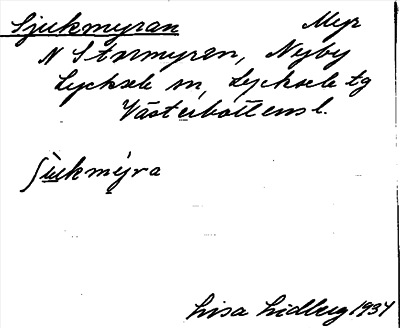 Sjukmyran Myr
N Stormyren, Nyby
Lycksele sn, Lycksele tg
Västerbottens l.
ʃùkmy̌ra
Lisa Lidberg 1934